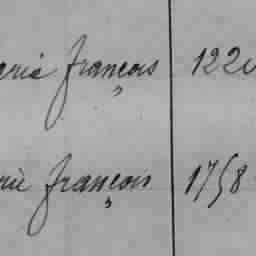 arie françois 122
rie françois 1758